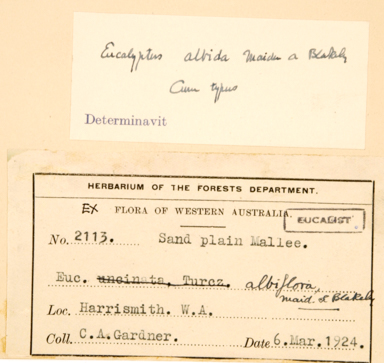 Eucalyptus albida Maiden a Blakely
Cum typus
Determinavit
HERBARIUM OF THE FORESTS DEPARTMENT.
EX FLORA OF WESTERN AUSTRALIA.
EUCALIST
No. 2113. Sand plain Mallee.
Euc. uncinata, Turcz. albiflora,
maid. & Blakely
Loc. Harrismith. W.A.
Coll. C.A.Gardner. Date 6.Mar.1924.